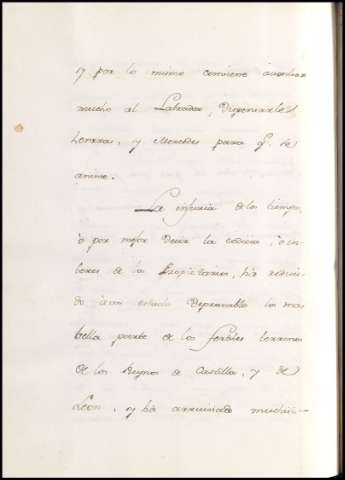 y por lo mismo conviene auxiliar
mucho al Labrador, Dispensarles
honrras, y Mercedes para q.e se
anime.
La injuria de los tiempos,
ô por mejor Decir la codicia, ô in
de los Propietarios, ha reduci-
do â un estado Deplorable la mas
bella parte de los fertiles terrenos
de los Reynos de Castilla, y de
Leon, y ha arruinado muchas